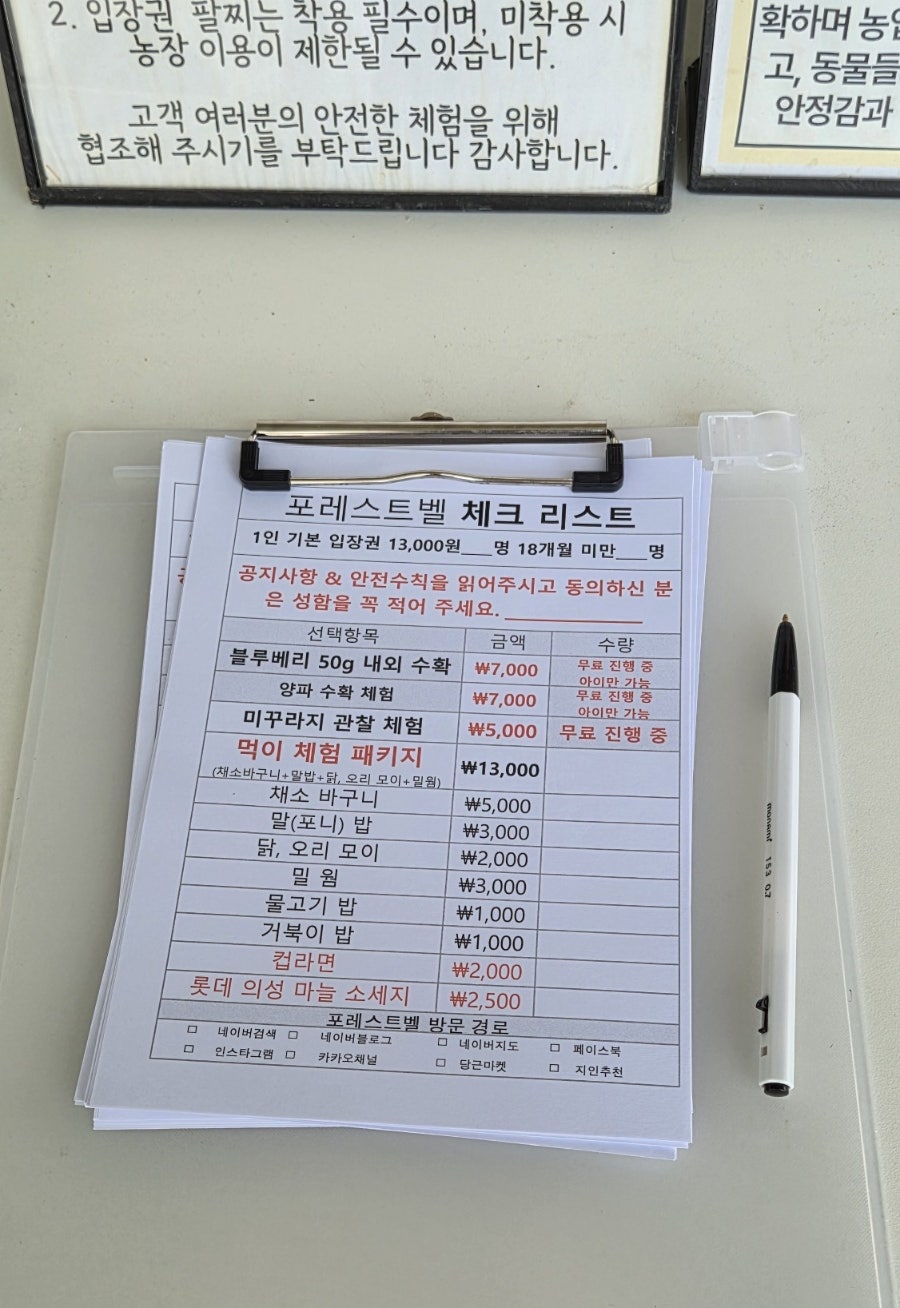 2. 입장권 팔찌는 착용 필수이며, 미착용 시
농장 이용이 제한될 수 있습니다.
고객 여러분의 안전한 체험을 위해
협조해 주시기를 부탁드립니다 감사합니다.
확하며
고, 동물들
안정감과
포레스트벨 체크 리스트
1인 기본 입장권 13,000원___명 18개월 미만___명
공지사항 & 안전수칙을 읽어주시고 동의하신 분
은 성함을 꼭 적어 주세요.____________
선택항목 금액 수량
블루베리 50g 내외 수확 ₩7,000 무료 진행 중
아이만 가능
양파 수확 체험 ₩7,000 무료 진행 중
아이만 가능
미꾸라지 관찰 체험 ₩5,000 무료 진행 중
먹이 체험 패키지 ₩13,000
(채소바구니+말밥+닭, 오리 모이+밀웜)
채소 바구니 ₩5,000
말(포니) 밥 ₩3,000
닭, 오리 모이 ₩2,000
밀 웜 ₩3,000
물고기 밥 ₩1,000
거북이 밥 ₩1,000
컵라면 ₩2,000
롯데 의성 마늘 소세지 ₩2,500
포레스트벨 방문 경로
□ 네이버검색 □ 네이버블로그 □ 네이버지도 □ 페이스북
□ 인스타그램 □ 카카오채널 □ 당근마켓 □ 지인추천
monami 153 0.7